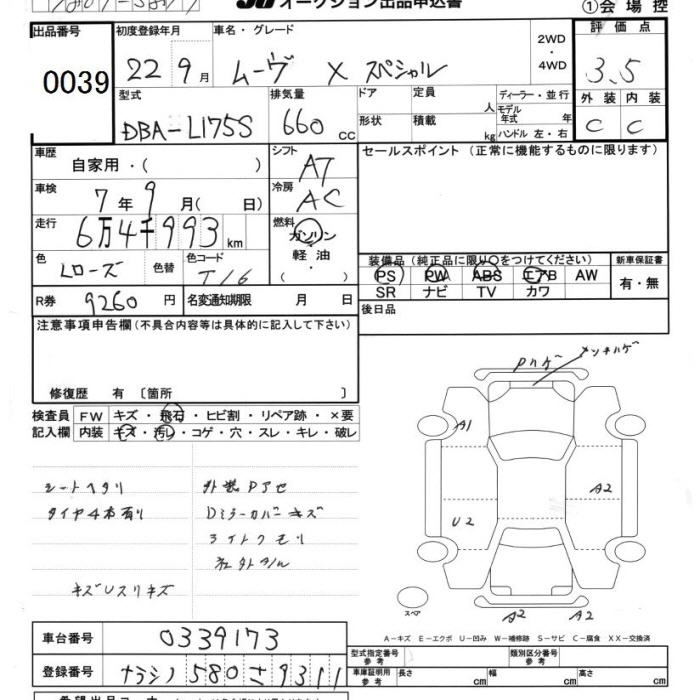 オークション出品申込書
①会場控
出品番号 0039
初度登録年月 22年 9月
車名・グレード ムーヴ X スペシャル
2WD・4WD
評価点 3.5
外装 C 内装 C
型式 DBA-L175S
排気量 660 cc
ドア 形状
定員 人 積載 kg
ディーラー・並行
モデル年式 年
ハンドル 左・右
車歴 自家用・( )
シフト AT
セールスポイント (正常に機能するものに限ります)
車検 7年 9月( 日)
冷房 AC
走行 6万4千993 km
燃料 ガソリン 軽油 ・( )
色 Lローズ 色替
色コード T16
装備品 (純正品に限り○をつけてください)
PS PW ABS エアB AW
SR ナビ TV カワ
新車保証書 有・無
R券 9260 円
名変通知期限 月 日
後日品
注意事項申告欄 (不具合内容等は具体的に記入して下さい)
修復歴 有 〔箇所 〕
検査員記入欄
FW キズ・飛石・ヒビ割・リペア跡・×要
内装 キズ・汚レ・コゲ・穴・スレ・キレ・破レ
シートヘタリ
タイヤ4本有り
キズUスリキズ
外装Pアセ
Dミラーカバーキズ
ライトクモリ
Pハゲ
メッキハゲ
A1
A2
U2
スペア
A2 A2
A-キズ E-エクボ U-凹み W-補修跡 S-サビ C-腐食 XX-交換済
車台番号 0339173
登録番号 ナラシノ 580 さ 9311
型式指定番号 参考
類別区分番号 参考
車庫証明用 参考 長さ cm 幅 cm 高さ cm